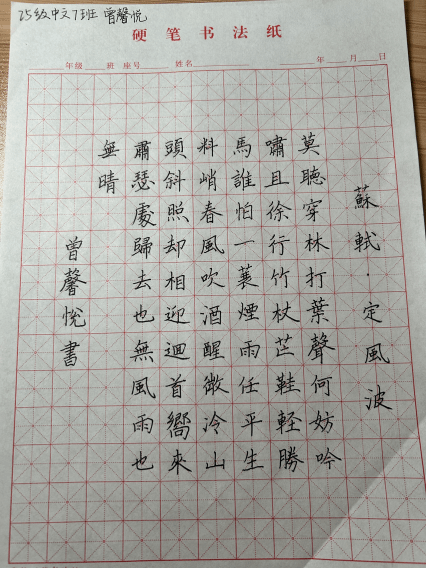 25级中文7班 曾馨悦
硬笔书法纸
年级 班 座号 姓名 年 月 日
蘇軾·定風波
莫聽穿林打葉聲何妨吟
嘯且徐行竹杖芒鞋軽勝
馬誰怕一蓑煙雨任平生
料峭春風吹酒醒微冷山
頭斜照却相迎迴首嚮來
肅瑟處歸去也無風雨也
無晴
曾馨悦書